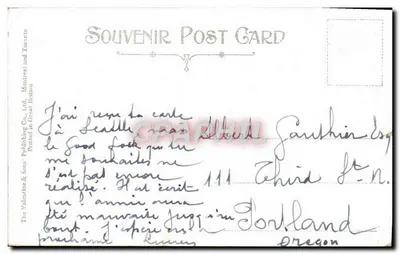 SOUVENIR POST CARD
The Valentine & Sons' Publishing Co., Ltd., Montreal and Toronto
Printed in Great Britain
J'ai reçu ta carte
à Seattle mais
le Good luck que tu
me souhaites ne
s'est pas encore
réalisé. Il est écrit
que l'année aura
été mauvaise jusqu'au
bout. J'espère
prochaine
Albert Gauthier Esq
111 Third St. N.
Portland
Oregon